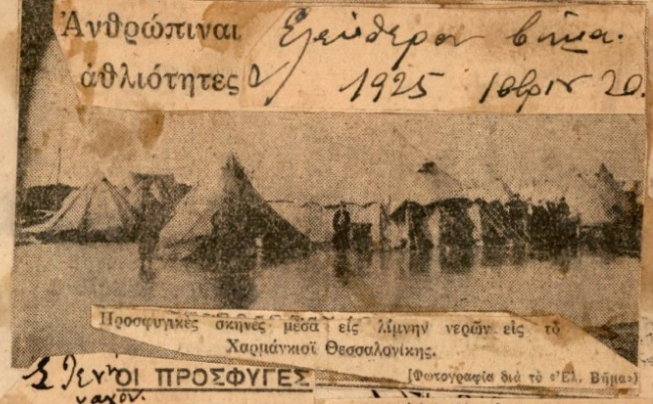 Ἀνθρώπιναι
ἀθλιότητες
Ελεύθερον βήμα.
1925 20.
Προσφυγικὲς σκηνὲς μέσα εἰς λίμνην νερῶν εἰς τὸ
Χαρμάνκιοϊ Θεσσαλονίκης.
[Φωτογραφία διὰ τὸ «Ἐλ. Βῆμα»)
ΟΙ ΠΡΟΣΦΥΓΕΣ